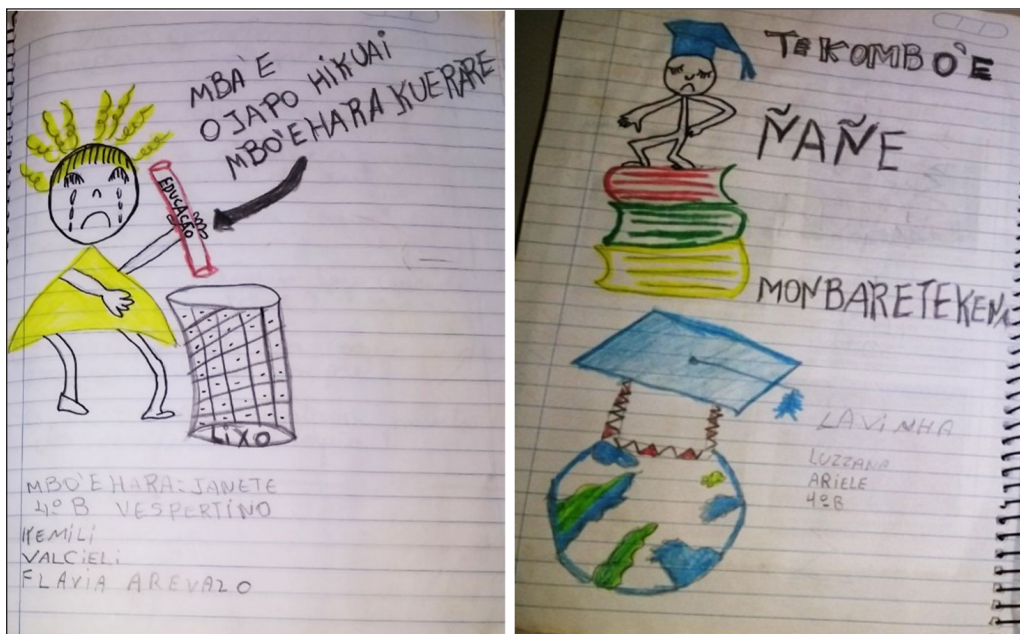 MBA'E
OJAPO HIKUAI
MBO'EHARA KUERARE
EDUCAÇÃO
LIXO
MBO'EHARA: JANETE
4º B VESPERTINO
KEMILI
VALCIELI
FLAVIA AREVALO
TEKOMBO'E
ÑAÑE
MONBARETEKENA
LAVINHA
LUZZANA
ARIELE
4ºB